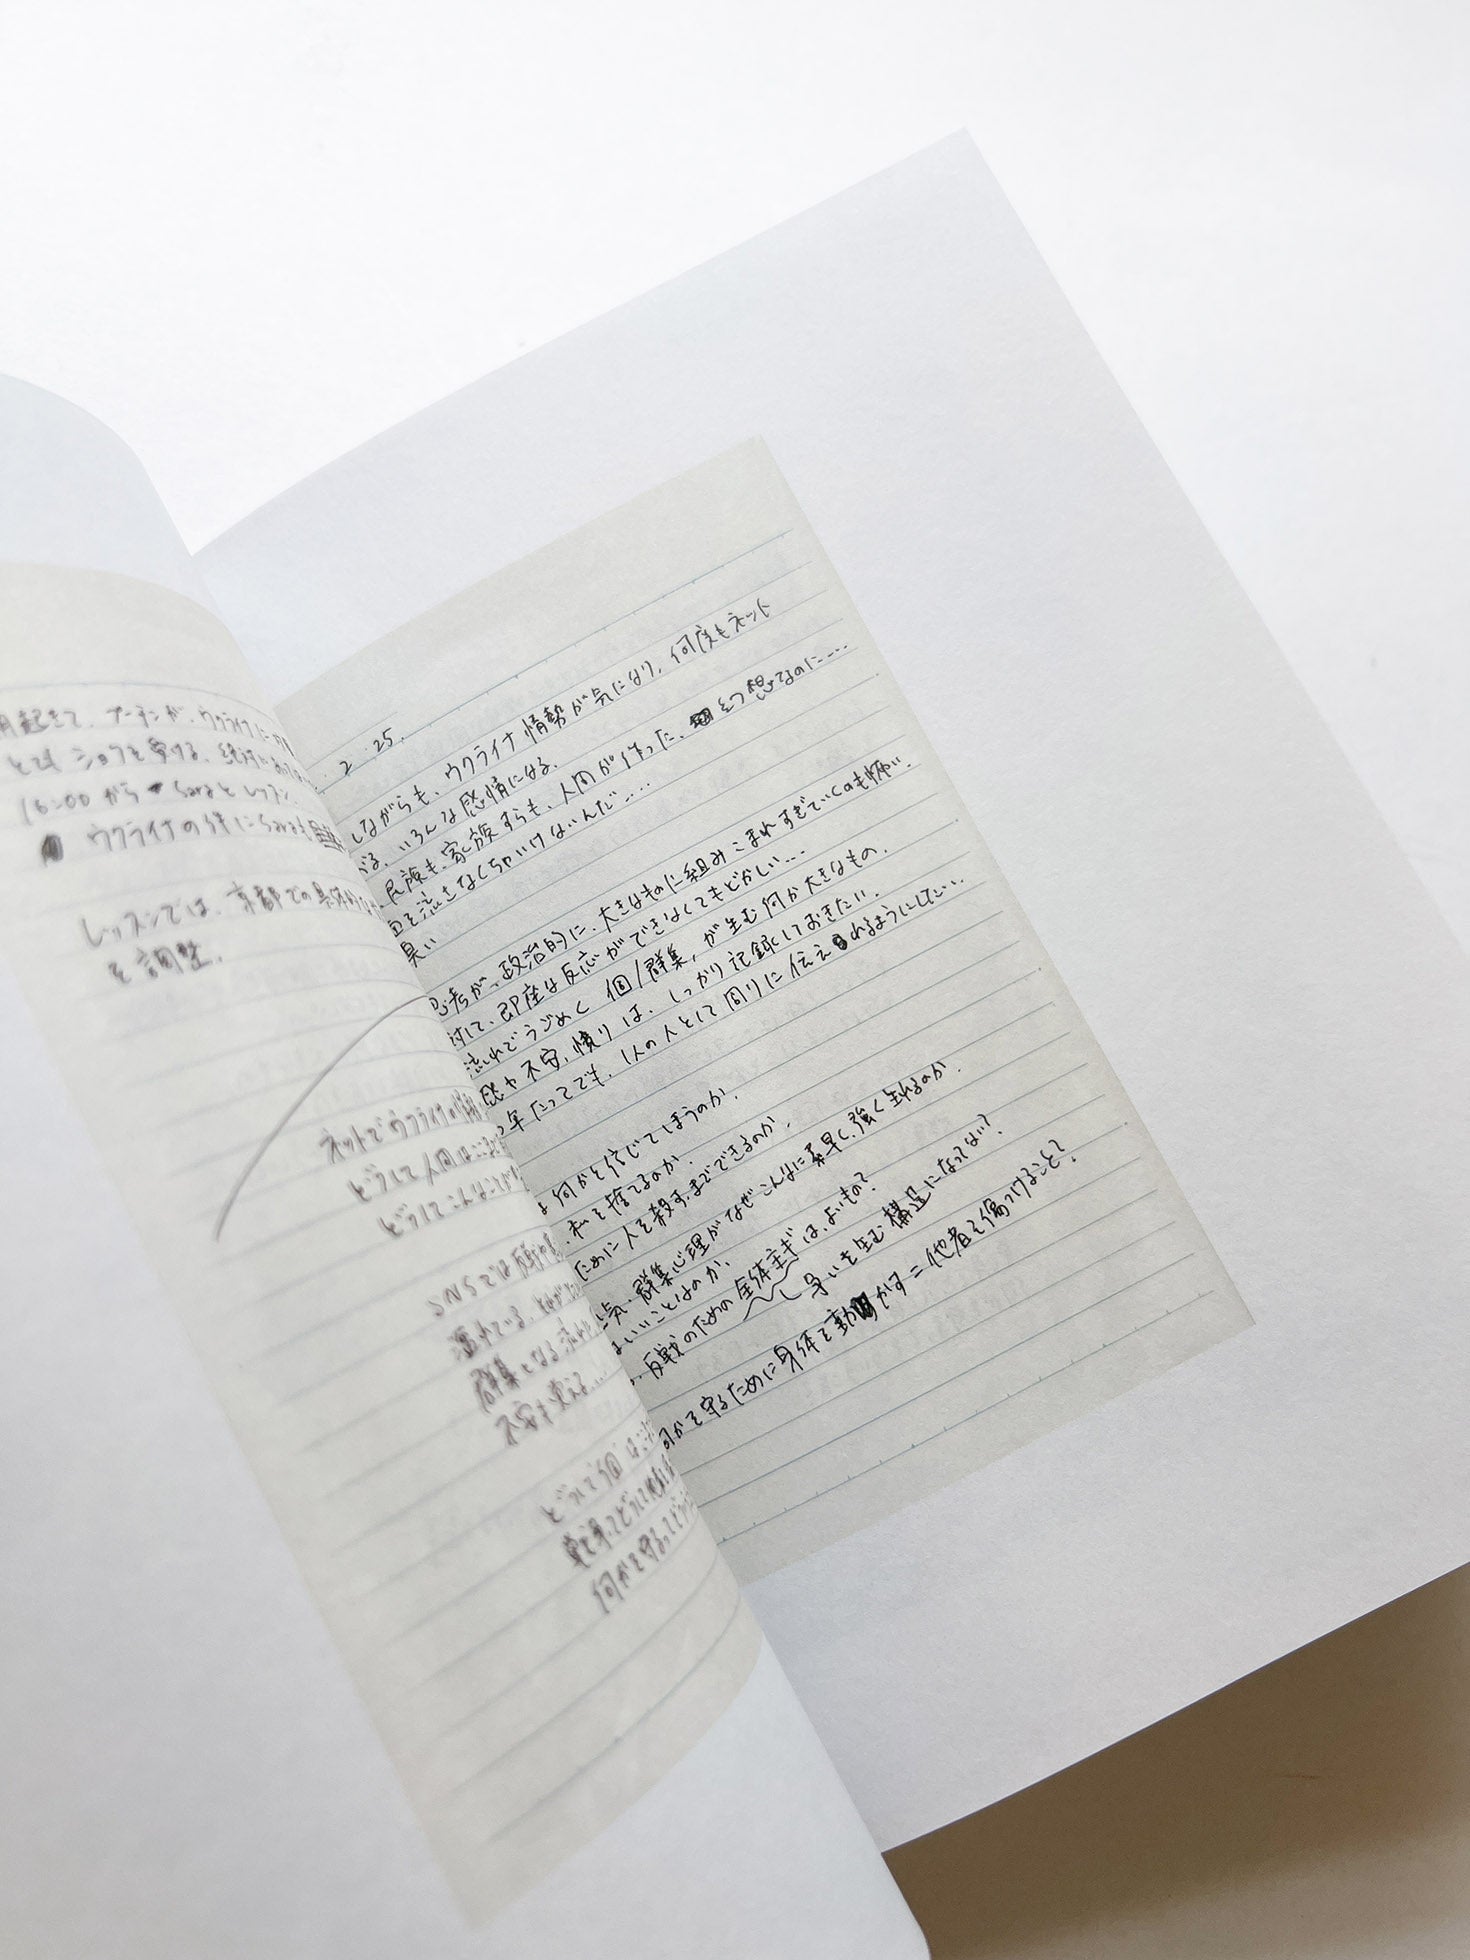 起きて、プーチンが、ウクライナに
とてもショックを受ける、絶対に
16:00から saraとレッスン、
ウクライナの件にsaraも
レッスンでは、京都での具体的な
を調整。
ネットでウクライナの情
どうして人間は
どうしてこんなことが
SNSでは反戦
溢れている、
群集となる流れ
不安も覚える...
どうして個は
何かを守るってどう
2. 25.
しながらも、ウクライナ情勢が気になり、何度もネット
る、いろんな感情になる。
民族も、家族すらも、人間が作った、幻想なのに....
血を流さなくちゃいけないんだ....
臭い
思考が、政治的に、大きなものに組みこまれすぎていくのも怖い。
対して、即座な反応ができなくてもどかしい...
流れでうごめく 個/群集、が生む何か大きなもの。
感や不安、憤りは、しっかり記録しておきたい。
年たってでも、1人の人として周りに伝えれるようにしたい...
何かを信じてしまうのか、
私を捨てるのか、
ために人を殺すまでできるのか、
気、群集心理がなぜこんなに素早く、強く生れるのか、
いいことなのか、
、反戦のための全体主ギは、よいもの?
争いを生む構造になってない?
何かを守るために身体を動かす=他者を傷つけること?